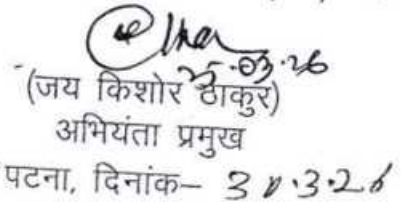 25.03.26
(जय किशोर ठाकुर)
अभियंता प्रमुख
पटना, दिनांक– 30.3.26